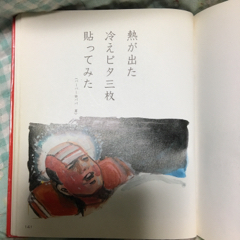 熱が出た
冷えピタ三枚
貼ってみた